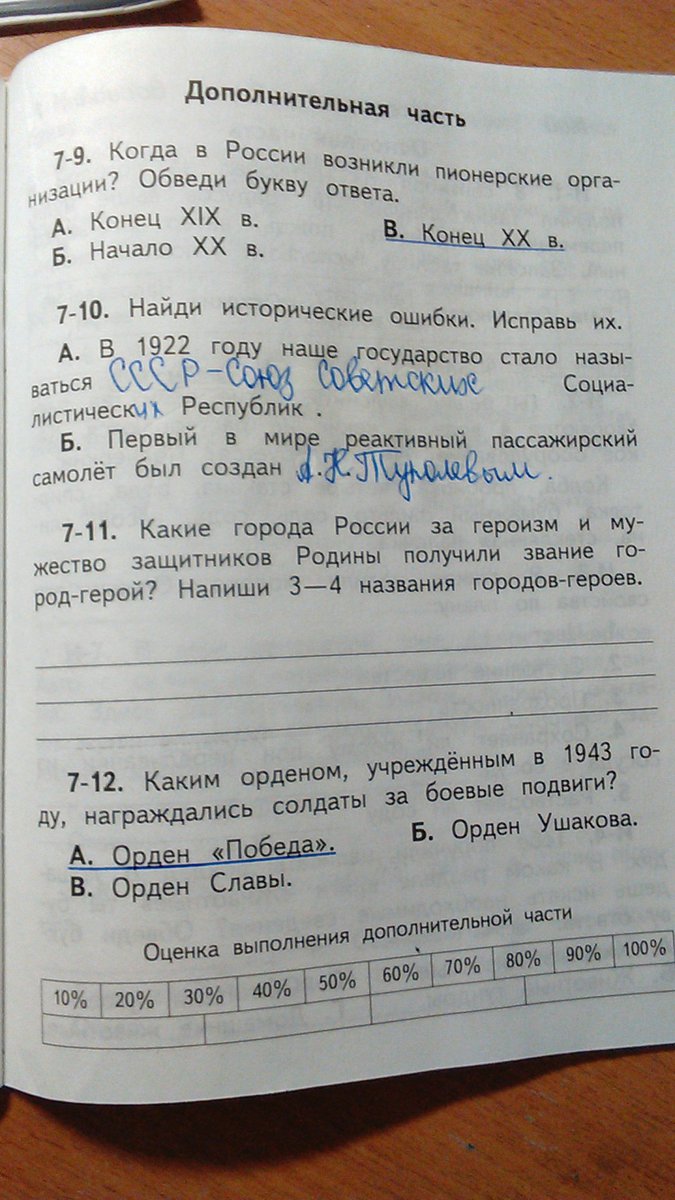 Дополнительная часть
7-9. Когда в России возникли пионерские орга-
низации? Обведи букву ответа.
А. Конец XIX в.
В. Конец XX в.
Б. Начало XX в.
7-10. Найди исторические ошибки. Исправь их.
А. В 1922 году наше государство стало назы-
ваться СССР-Союз Советских Социа-
листических Республик .
Б. Первый в мире реактивный пассажирский
самолёт был создан А.Н.Туполевым.
7-11. Какие города России за героизм и му-
жество защитников Родины получили звание го-
род-герой? Напиши 3—4 названия городов-героев.
7-12. Каким орденом, учреждённым в 1943 го-
ду, награждались солдаты за боевые подвиги?
А. Орден «Победа».
Б. Орден Ушакова.
В. Орден Славы.
Оценка выполнения дополнительной части
10% 20% 30% 40% 50% 60% 70% 80% 90% 100%